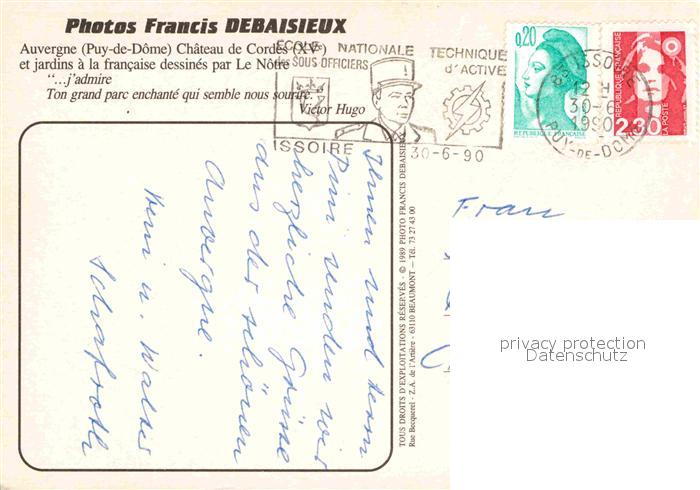 Photos Francis DEBAISIEUX
Auvergne (Puy-de-Dôme) Château de Cordès (XVe)
et jardins à la française dessinés par Le Nôtre
“...j’admire
Ton grand parc enchanté qui semble nous sourire...”
Victor Hugo
ECOLE NATIONALE TECHNIQUE
DE SOUS OFFICIERS D'ACTIVE
ISSOIRE 30-6-90
0,20
REPUBLIQUE FRANÇAISE
2,30
REPUBLIQUE FRANÇAISE
LA POSTE
63 ISSOIRE
12 H
30-6
1990
PUY-DE-DOME
Ihnen und Herrn
senden wir
herzliche Grüsse
aus der schönen
Auvergne.
u. Walter
TOUS DROITS D'EXPLOITATIONS RÉSERVÉS - © 1989 PHOTO FRANCIS DEBAISIEUX
Rue Becquerel - Z.A. de l'Artière - 63110 BEAUMONT — Tél. 73 27 43 00
privacy protection
Datenschutz